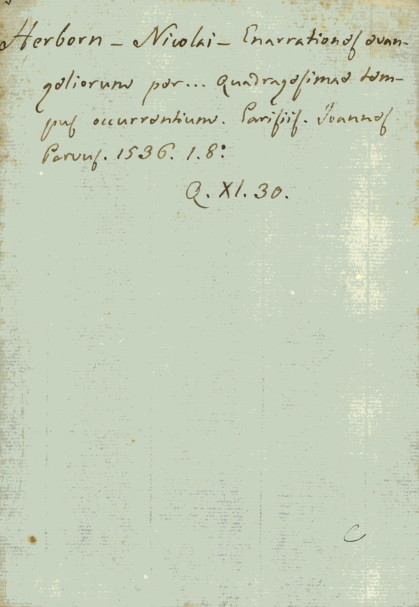 Herborn – Nicolai – Enarrationes evan-
geliorum per... Quadragesimae tem-
pus occurrentium. Parisiis. Joannes
Parvus. 1536. 1. 8º
Q. XI. 30.
C